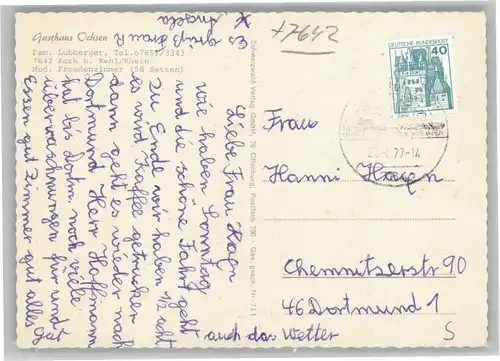 Gasthaus Ochsen
Fam. Lubberger, Tel. 07851/3343
7642 Kork b. Kehl/Rhein
Mod. Fremdenzimmer (58 Betten)
+7642
DEUTSCHE BUNDESPOST
40
77-14
Schwarzwald Verlag GmbH, 76 Offenburg, Postfach 780 Ges. gesch. Nr.
Liebe Frau Hagen
wir haben Sonntag
und die schöne Fahrt geht
zu Ende wir haben ½ acht
es wird Kaffee getrunken
dann geht es wieder nach
Dortmund Herr Hoffmann
hat bis Dortm. noch viele
überraschungen für und
Essen gut Zimmer gut alles gut
auch das Wetter
Es grüß Frau R
Angela
Frau
Hanni Hagen
Chemnitzerstr 90
46 Dortmund 1
S